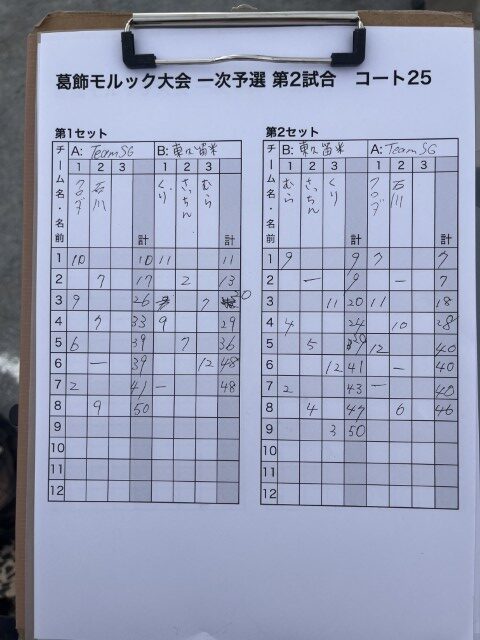 葛飾モルック大会 一次予選 第2試合 コート25
第1セット
チーム名・名前 A: TeamSG B: 東久留米
1 2 3 計 1 2 3 計
石川 くり さっちん むら
1 10 10 11 11
2 7 17 2 13
3 9 26 7 20
4 7 33 9 29
5 6 39 7 36
6 — 39 12 48
7 2 41 — 48
8 9 50
9
10
11
12
第2セット
チーム名・名前 B: 東久留米 A: TeamSG
1 2 3 計 1 2 3 計
むら さっちん くり 石川
1 9 9 7 7
2 — 9 — 7
3 11 20 11 18
4 4 24 10 28
5 5 12 40
6 12 41 — 40
7 2 43 — 40
8 4 47 6 46
9 3 50
10
11
12